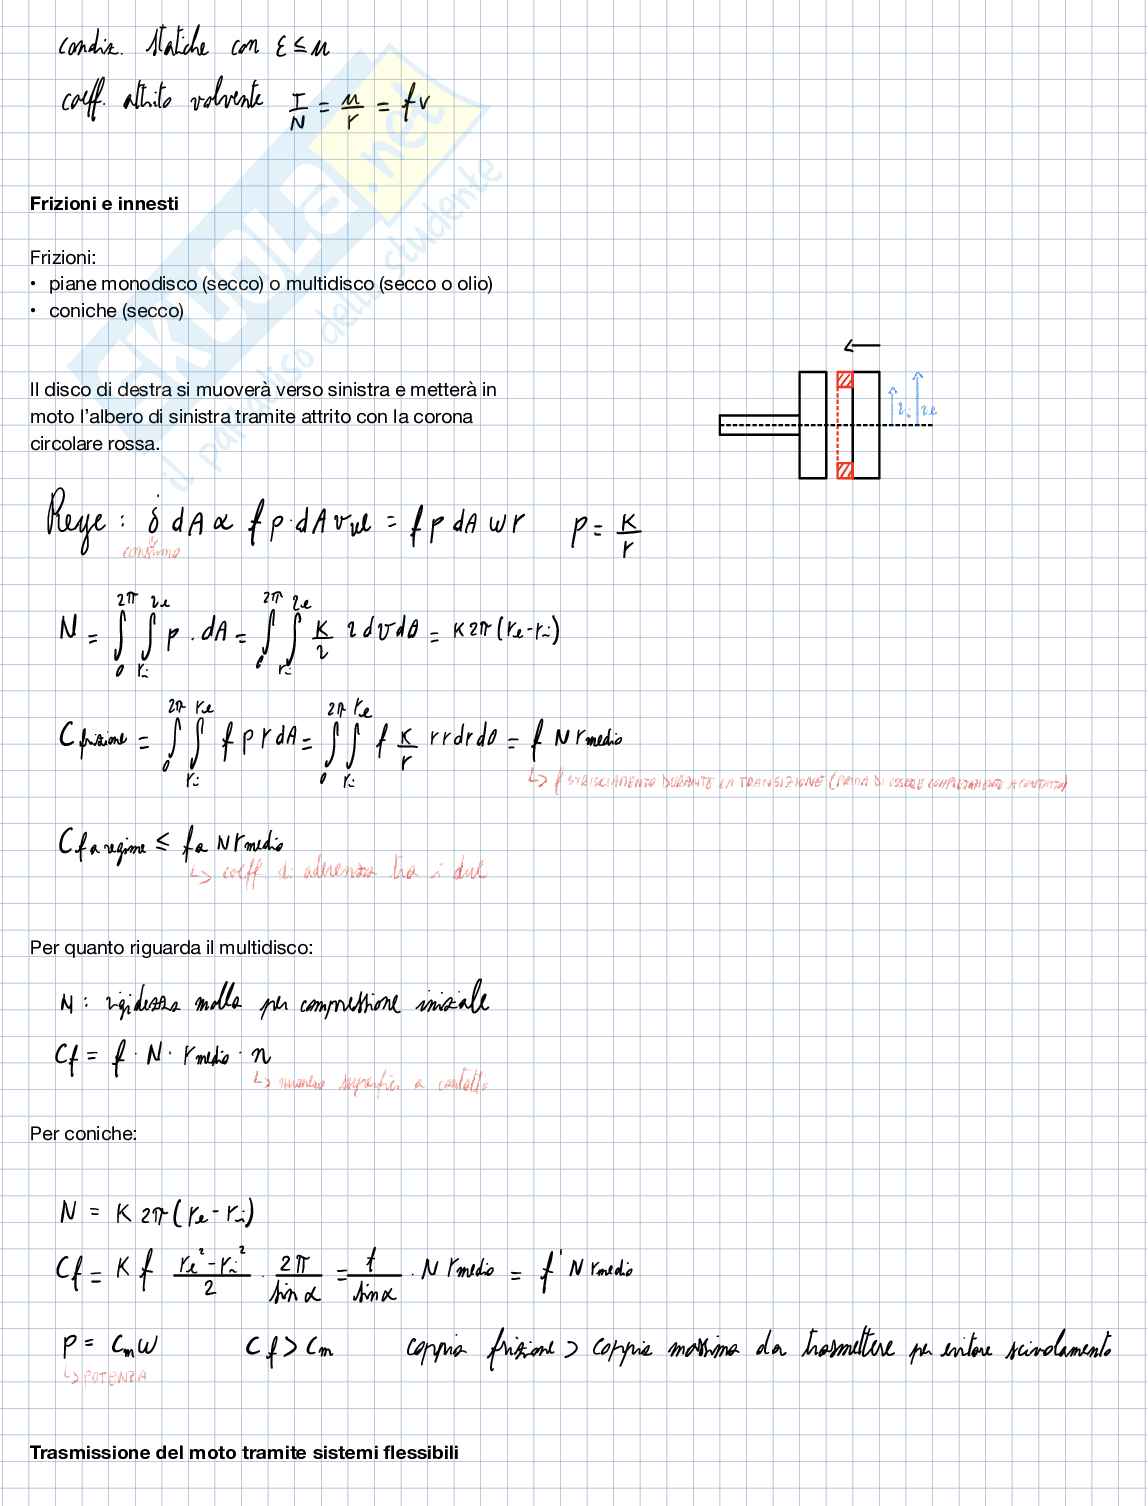 condiz. statiche con ε ≤ u
coeff. attrito volvente T/N = u/r = fv
SKUOLA.net
il paradiso dello studente
Frizioni e innesti
Frizioni:
• piane monodisco (secco) o multidisco (secco o olio)
• coniche (secco)
Il disco di destra si muoverà verso sinistra e metterà in
moto l'albero di sinistra tramite attrito con la corona
circolare rossa.
ri re
Reye: δ̇ dA ∝ f p · dA vrel = f p dA ω r p = K/r
consumo
N = ∫₀^2π ∫ri^re p · dA = ∫₀^2π ∫ri^re K/r r dr dθ = K 2π (re - ri)
Cfrizione = ∫₀^2π ∫ri^re f p r dA = ∫₀^2π ∫ri^re f K/r r r dr dθ = f N rmedio
↳ f STRISCIAMENTO DURANTE LA TRANSIZIONE (PRIMA DI ESSERE COMPLETAMENTE A CONTATTO)
Cf a regime ≤ fa N rmedio
↳ coeff di aderenza tra i due
Per quanto riguarda il multidisco:
N: rigidezza molla per compressione iniziale
Cf = f · N · rmedio · n
↳ numero superfici a contatto
Per coniche:
N = K 2π (re - ri)
Cf = K f (re² - ri²)/2 · 2π/sin α = f/sin α · N rmedio = f' N rmedio
P = Cm ω Cf > Cm coppia frizione > coppia massima da trasmettere per evitare scivolamento
↳ POTENZA
Trasmissione del moto tramite sistemi flessibili